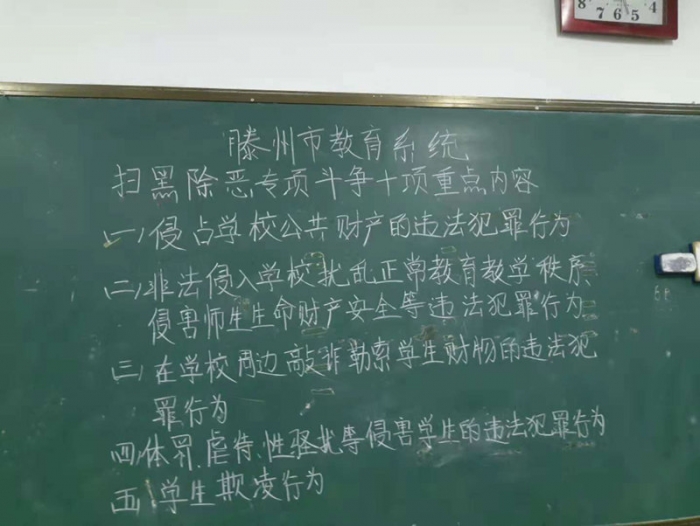 8 7 6 5 4
滕州市教育系统
扫黑除恶专项斗争十项重点内容
(一)侵占学校公共财产的违法犯罪行为
(二)非法侵入学校扰乱正常教育教学秩序、
侵害师生生命财产安全等违法犯罪行为
(三)在学校周边敲诈勒索学生财物的违法犯
罪行为
(四)体罚、虐待、性骚扰等侵害学生的违法犯罪行为
(五)学生欺凌行为